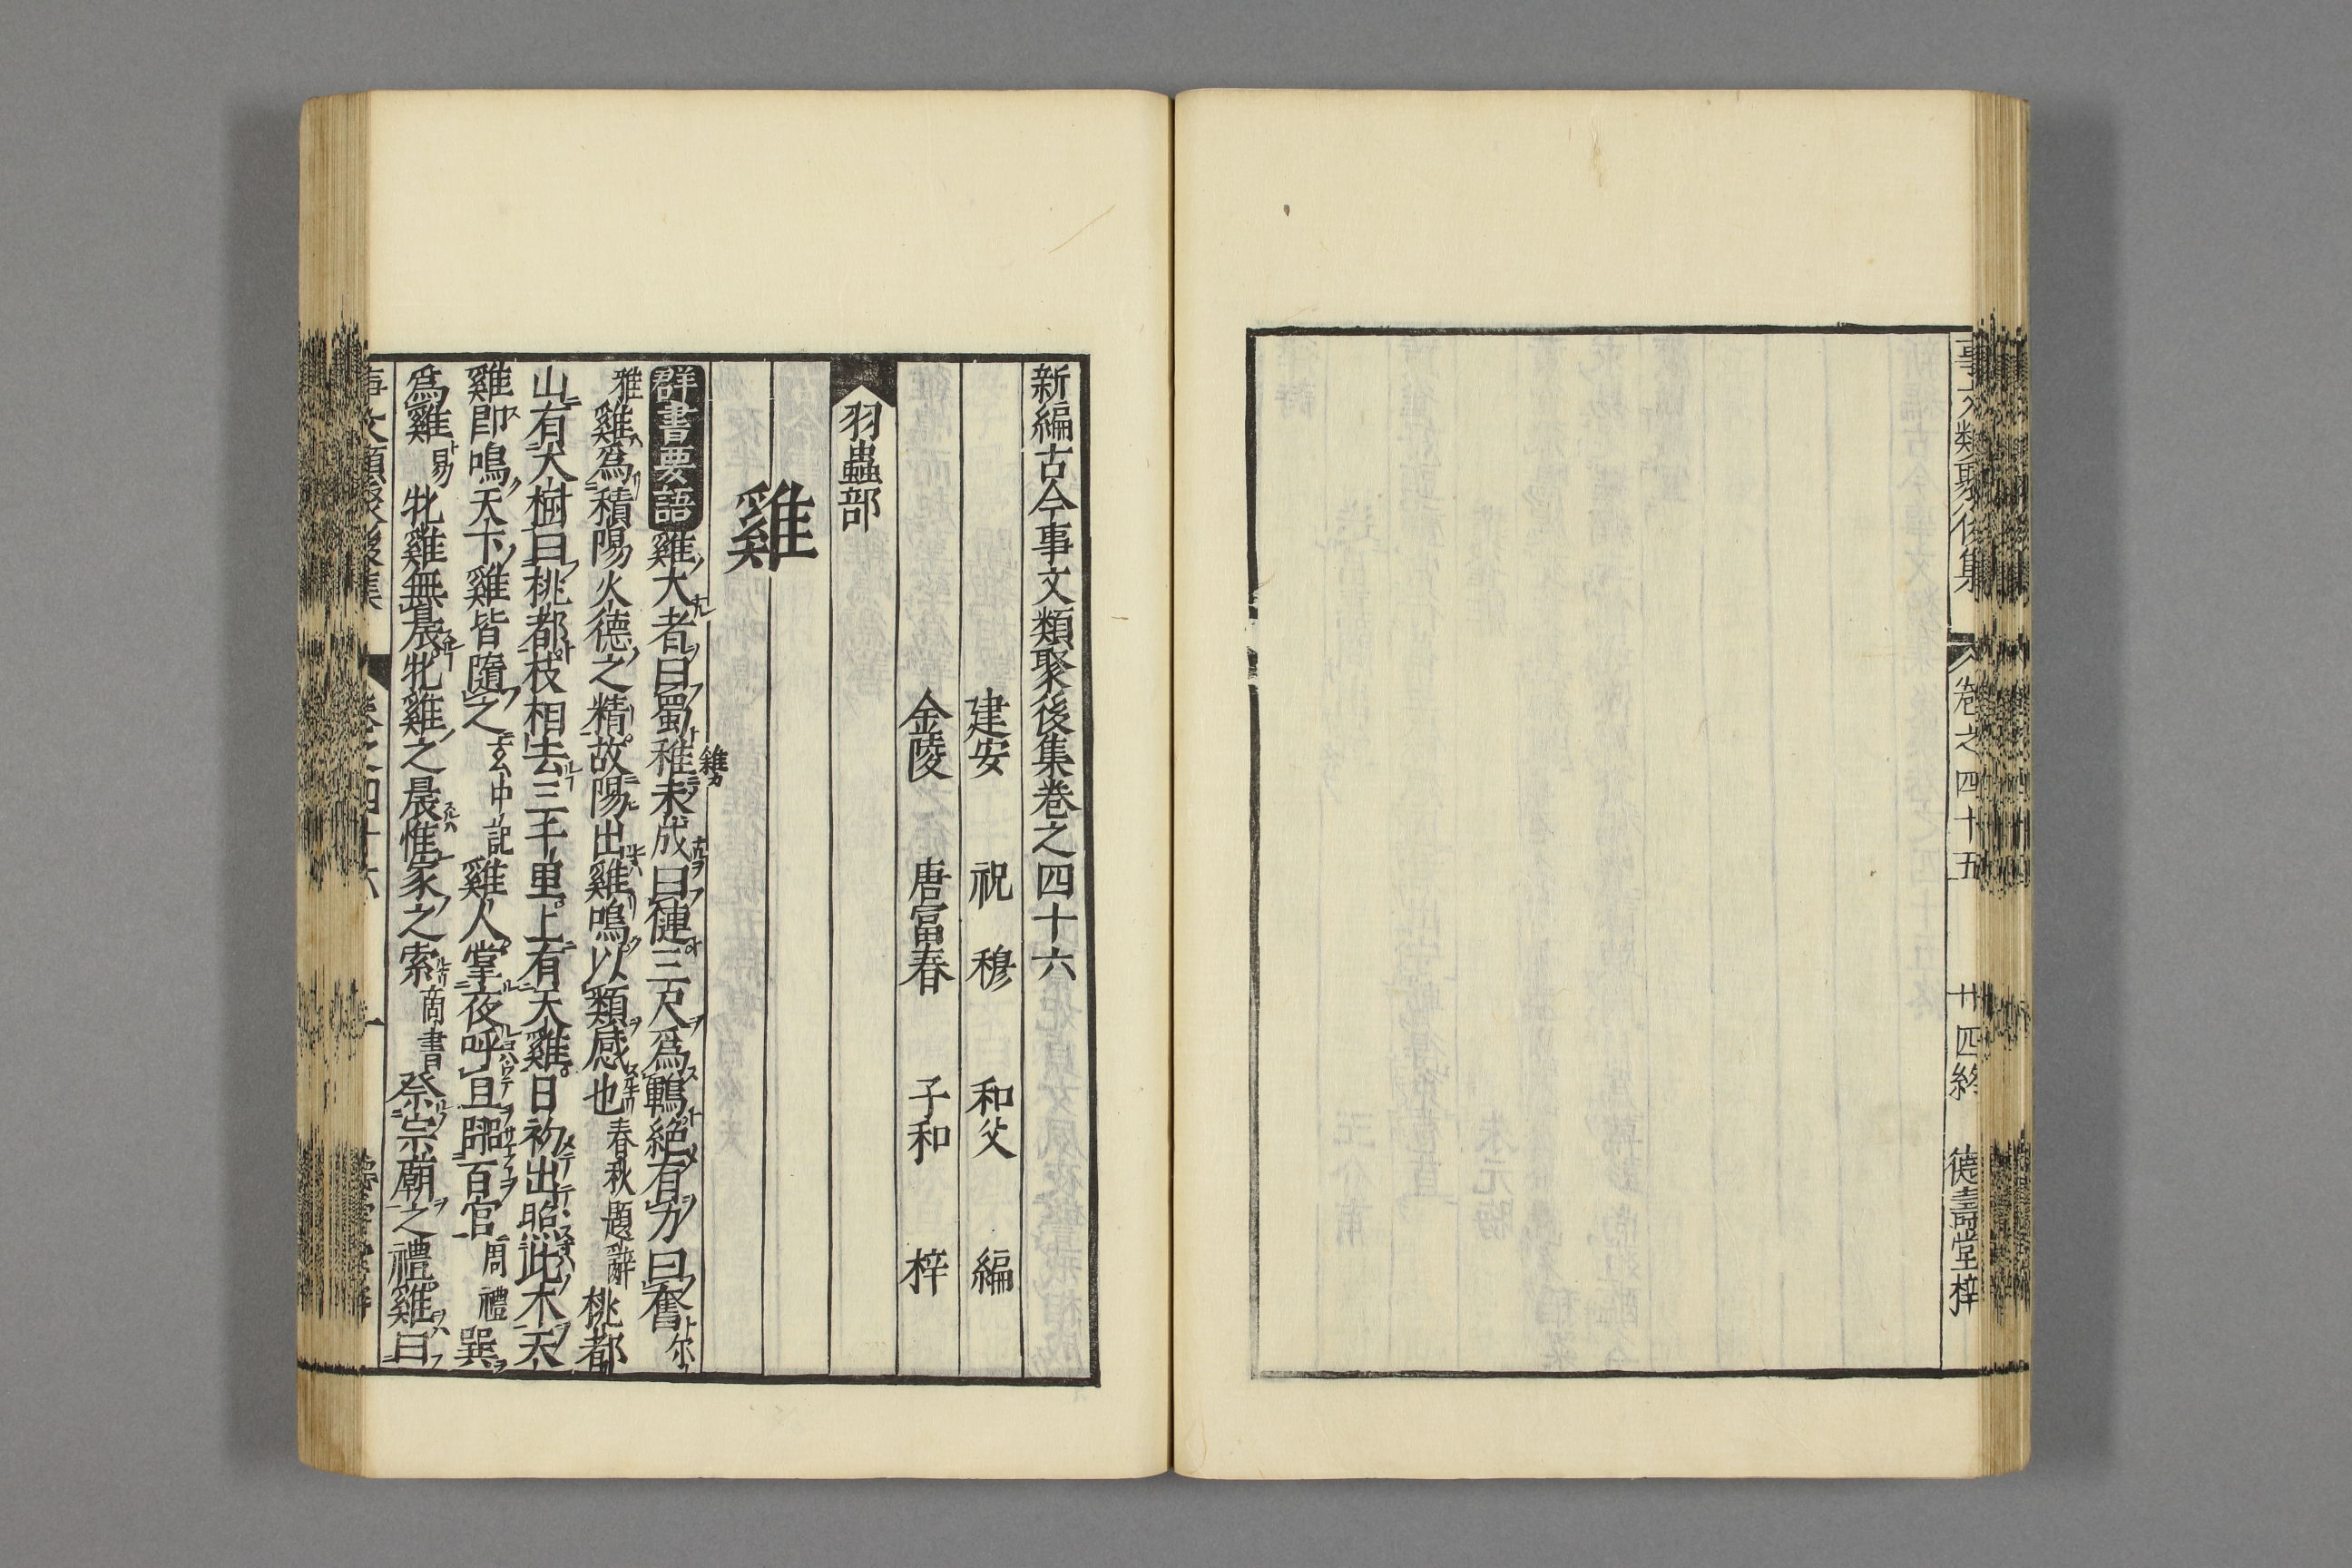 事文類聚後集 卷之四十五 廿四終 德壽堂梓
新編古今事文類聚後集卷之四十六
建安 祝 穆 和父 編
金陵 唐富春 子和 梓
羽蟲部
雞
群書要語雞大者曰蜀稚未成曰僆三尺爲鶤絕有力曰奮尔
雛カ
雅雞爲積陽火德之精故陽出雞鳴以類感也春秋題辭桃都
山有大樹曰桃都枝相去三千里上有天雞日初出照此木天
雞卽鳴天下雞皆隨之玄中記雞人掌夜呼旦嘂百官周禮巽
爲雞易牝雞無晨牝雞之晨惟家之索商書祭宗廟之禮雞曰
事文類聚後集 卷之四十六 一